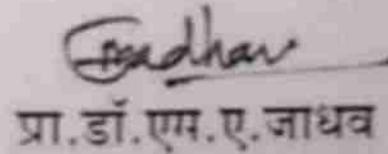 प्रा.डॉ.एम.ए.जाधव